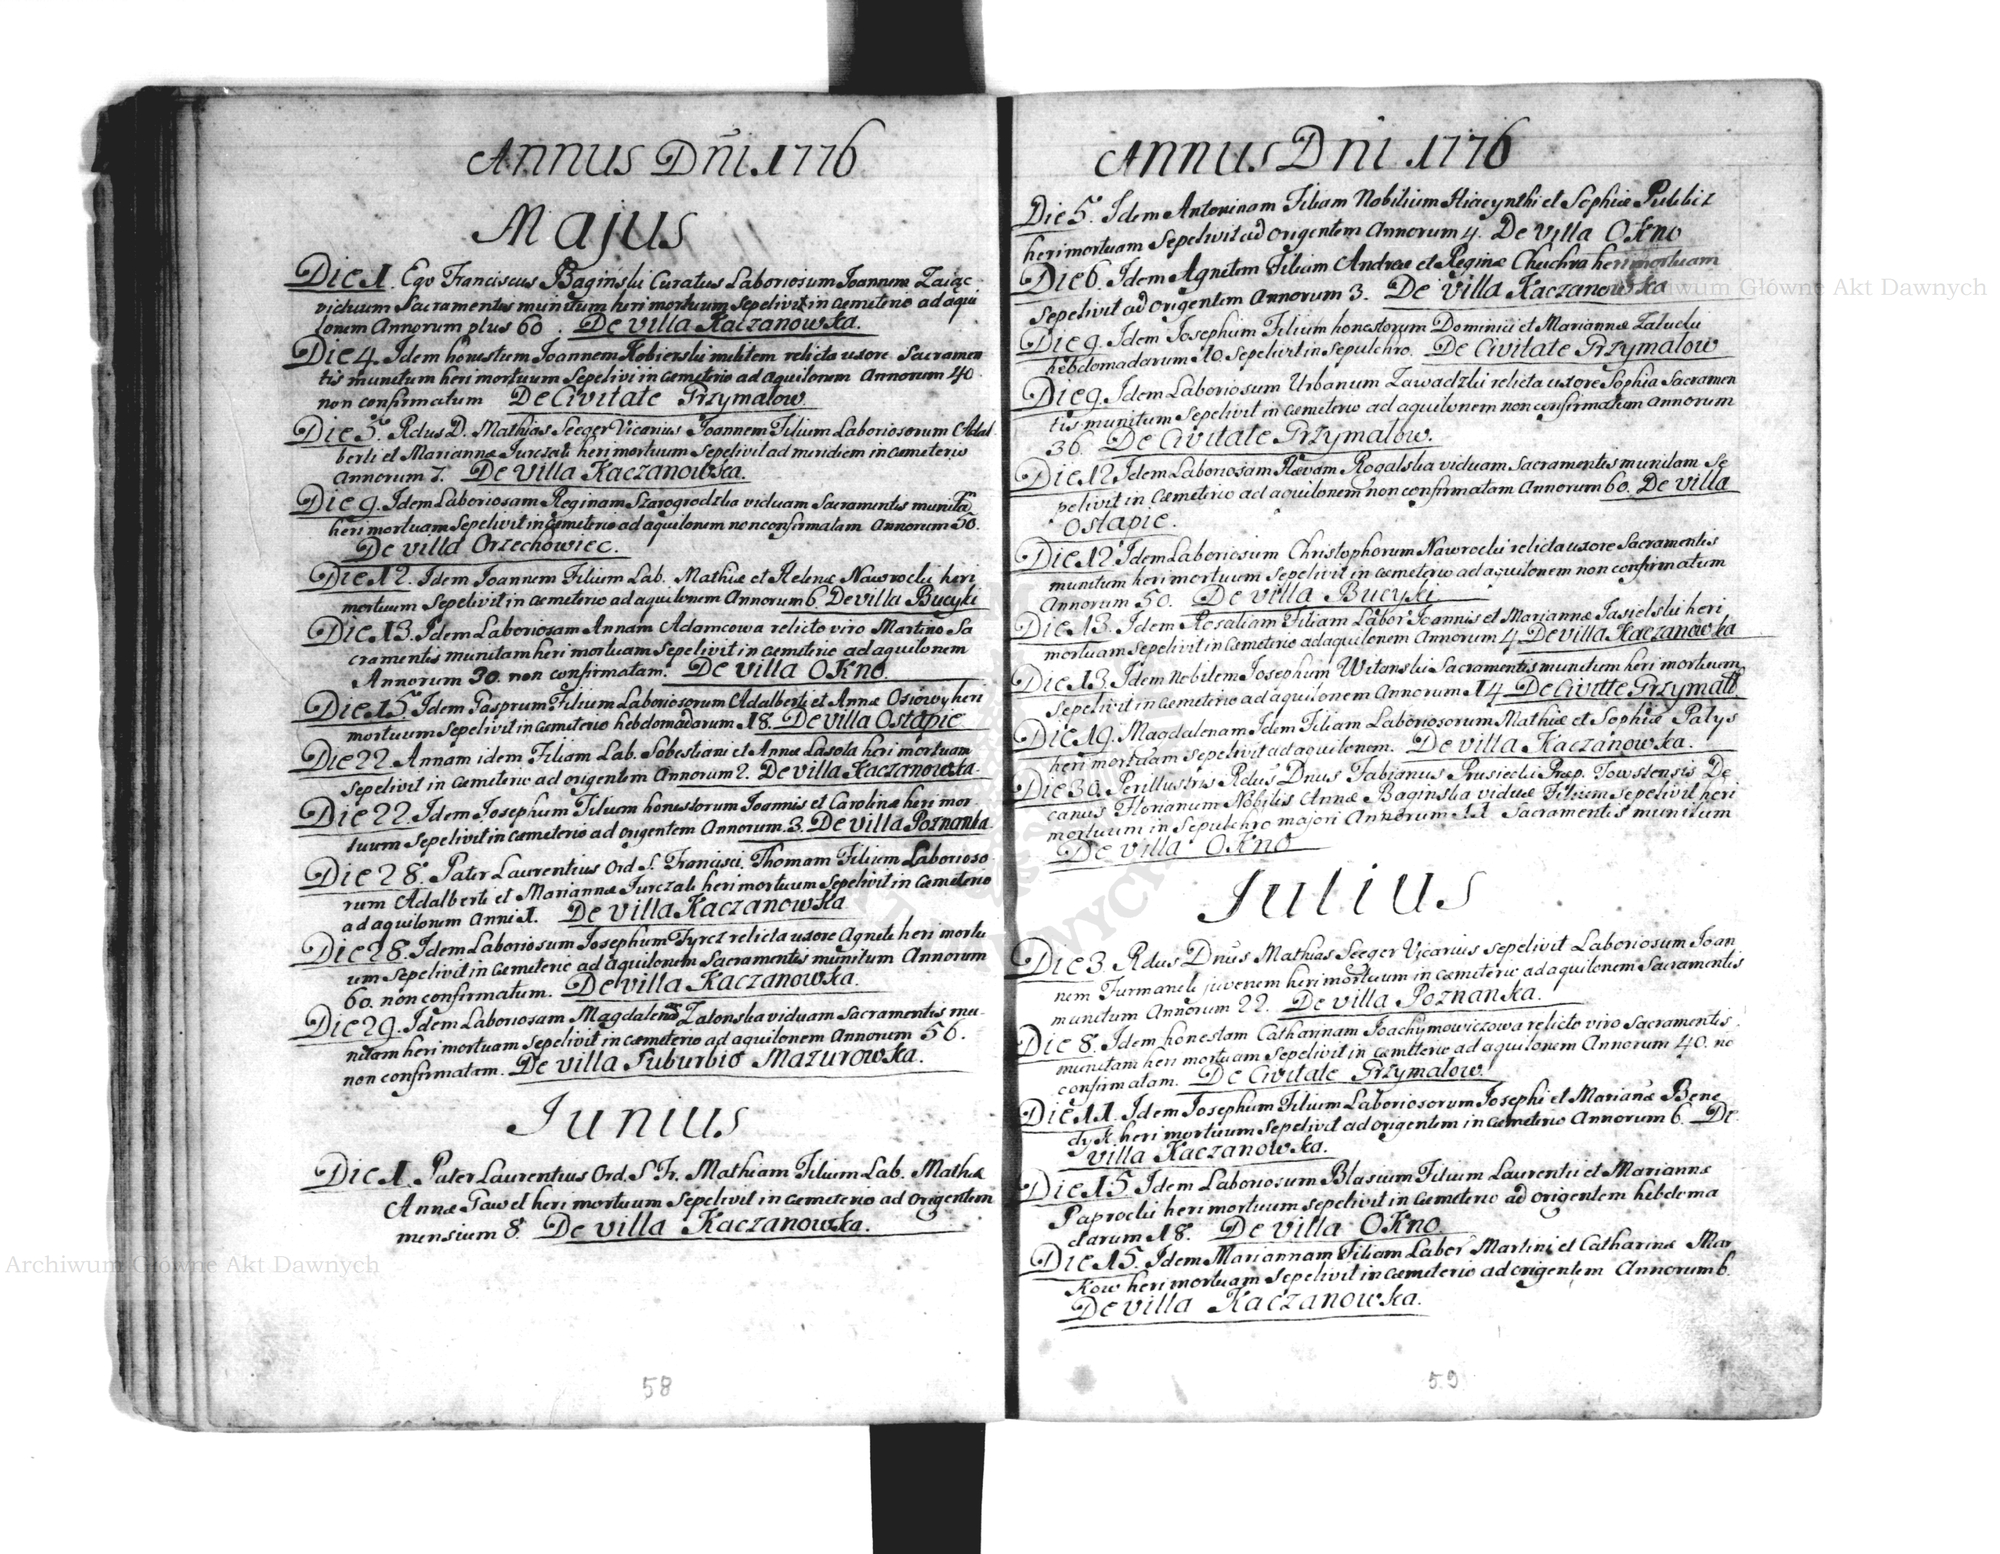 Annus Dñi 1776
Majus
Die 1. Ego Franciscus Baginski Curatus Laboriosum Joannem Zaiąc
viduum Sacramentis munitum heri mortuum Sepelivit in cæmeterio ad aqui
lonem Annorum plus 60. De villa Kaczanowka.
Die 4. Idem honestum Joannem Kobierski militem relicta uxore Sacramen
tis munitum heri mortuum Sepelivi in cæmeterio ad aquilonem Annorum 40
non confirmatum De Civitate Grzymalow
Die 5. Rdus D. Mathias Seeger Vicarius Joannem Filium Laboriosorum Adal
berti et Mariannæ Jurczak heri mortuum Sepelivit ad meridiem in cæmeterio
Annorum 7. De villa Kaczanowka.
Die 9. Idem Laboriosam Reginam Szarogrodzka viduam Sacramentis munitã
heri mortuam Sepelivit in Cæmeterio ad aquilonem non confirmatam Annorum 50.
De villa Orzechowiec.
Die 12. Idem Joannem Filium Lab. Mathiæ et Helenæ Nawrocki heri
mortuum Sepelivit in cæmeterio ad aquilonem Annorum 6. De villa Bucyki
Die 13. Idem Laboriosam Annam Adamcowa relicto viro Martino Sa
cramentis munitam heri mortuam Sepelivit in cæmeterio ad aquilonem
Annorum 30. non confirmatam. De villa Okno.
Die 15. Idem Gasprum Filium Laboriosorum Adalberti et Annæ Osiowy heri
mortuum Sepelivit in Cæmeterio hebdomadarum 18. De villa Ostapie
Die 22. Annam idem Filiam Lab. Sobestiani et Annæ Lasota heri mortuam
Sepelivit in Cæmeterio ad origentem Annorum 2. De villa Kaczanowka.
Die 22. Idem Josephum Filium honestorum Joannis et Carolinæ heri mor
tuum Sepelivit in cæmeterio ad origentem Annorum 3. De villa Poznanka
Die 28. Pater Laurentius Ord. S. Francisci, Thomam Filium Laborioso
rum Adalberti et Mariannæ Jurczak heri mortuum Sepelivit in Cæmeterio
ad aquilonem Anni 1. De villa Kaczanowka
Die 28. Idem Laboriosum Josephum Tyrcz relicta uxore Agnete heri mortu
um Sepelivit in Cæmeterio ad aquilonem Sacramentis munitum Annorum
60. non confirmatum. De villa Kaczanowka.
Die 29. Idem Laboriosam Magdalenam Zatonska viduam Sacramentis mu-
nitam heri mortuam Sepelivit in cæmeterio ad aquilonem Annorum 56.
non confirmatam. De villa Suburbio Mazurowka.
Junius
Die 1. Pater Laurentius Ord. S. Fr. Mathiam Filium Lab. Mathiæ
Annæ Gawel heri mortuum Sepelivit in cæmeterio ad Origentem
mensium 8. De villa Kaczanowka.
58
Annus Dni 1776
Die 5. Idem Antoninam Filiam Nobilium Hiacynthi et Sophiæ
heri mortuam Sepelivit ad origentem Annorum 4. De villa Okno
Die 6. Idem Agnetem Filiam Andreæ et Reginæ Chuchra heri mortuam
Sepelivit ad origentem Annorum 3. De villa Kaczanowka
Die 9. Idem Josephum Filium honestorum Dominici et Mariannæ Zalucki
hebdomadarum 10. Sepelivit in Sepulchro. De Civitate Grzymalow
Die 9. Idem Laboriosum Urbanum Zawadzki relicta uxore Sophia Sacramen
tis munitum Sepelivit in cæmeterio ad aquilonem non confirmatum Annorum
36. De Civitate Grzymalow.
Die 12. Idem Laboriosam Hævam Rogalska viduam Sacramentis munitam Se
pelivit in Cæmeterio ad aquilonem non confirmatam Annorum 60. De villa
Ostapie.
Die 12. Idem Laboriosum Christophorum Nawrocki relicta uxore Sacramentis
munitum heri mortuum Sepelivit in cæmeterio ad aquilonem non confirmatum
Annorum 50. De villa Bucyki
Die 13. Idem Rosaliam Filiam Labor Joannis et Mariannæ Jasielski heri
mortuam Sepelivit in Cæmeterio ad aquilonem Annorum 4. De villa Kaczanowka
Die 13. Idem Nobilem Josephum Witonski Sacramentis munitum heri mortuum
Sepelivit in Cæmeterio ad aquilonem Annorum 14 De Civitte Grzymall.
Die 19. Magdalenam Idem Filiam Laboriosorum Mathiæ et Sophiæ Patys
heri mortuam Sepelivit ad aquilonem. De villa Kaczanowka.
Die 30. Perillustris Rdus Dnus Fabianus Prusiecki Præp. Towstensis De
canus Florianum Nobilis Annæ Baginska viduæ Filium Sepelivit heri
mortuum in Sepulchro majori Annorum 11 Sacramentis munitum
De villa Okno
Julius
Die 3. Rdus Dnus Mathias Seeger Vicarius sepelivit Laboriosum Joan
nem Furmanek juvenem heri mortuum in cæmeterio ad aquilonem Sacramentis
munitum Annorum 22. De villa Poznanka.
Die 8. Idem honestam Catharinam Joachymowiczowa relicto viro Sacramentis
munitam heri mortuam Sepelivit in cæmeterio ad aquilonem Annorum 40. no
confirmatam. De Civitate Grzymalow.
Die 11. Idem Josephum Filium Laboriosorum Josephi et Marianæ Bene
dyk heri mortuum Sepelivit ad origentem in Cæmeterio Annorum 6. De
villa Kaczanowka.
Die 15 Idem Laboriosum Blasium Filium Laurentii et Mariannæ
Paprocki heri mortuum sepelivit in Cæmeterio ad origentem hebdoma
darum 18. De villa Okno
Die 15. Idem Mariannam Filiam Labor Martini et Catharinæ Mar
kow heri mortuam Sepelivit in cæmeterio ad origentem Annorum 6.
De villa Kaczanowka.
59
Archiwum Główne Akt Dawnych
Archiwum Główne Akt Dawnych